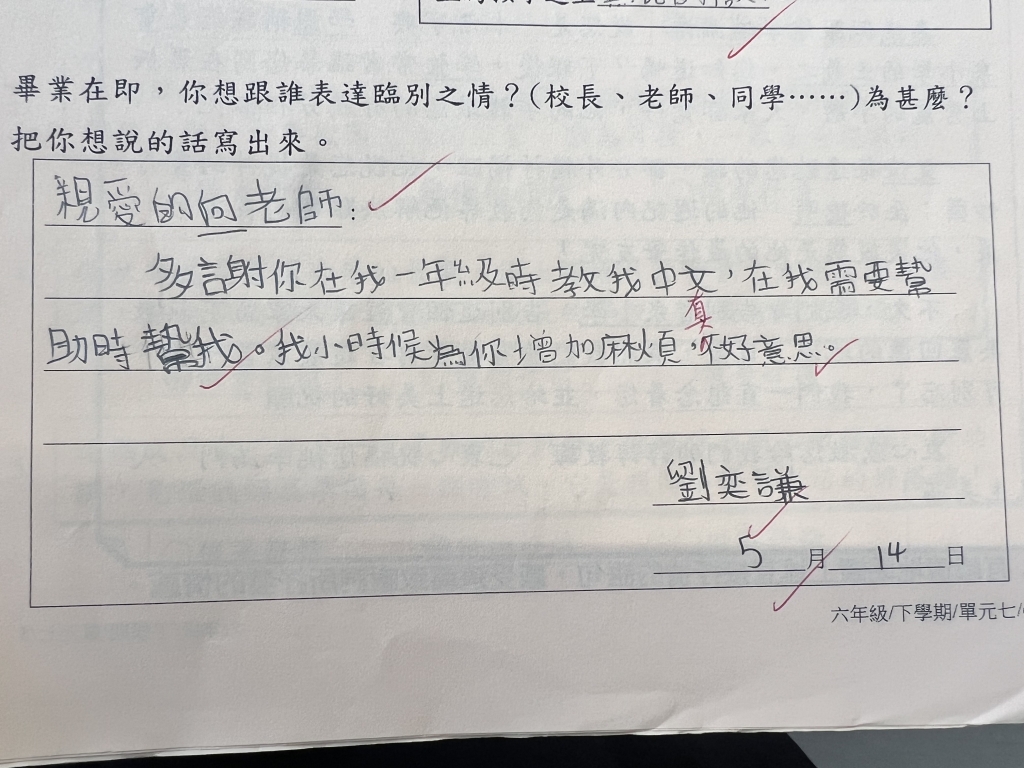 畢業在即，你想跟誰表達臨別之情？(校長、老師、同學……)為甚麼？
把你想說的話寫出來。
親愛的向老師：
多謝你在我一年級時教我中文，在我需要幫
助時幫我。我小時候為你增加麻煩，真不好意思。
劉奕謙
5月14日
六年級/下學期/單元七/